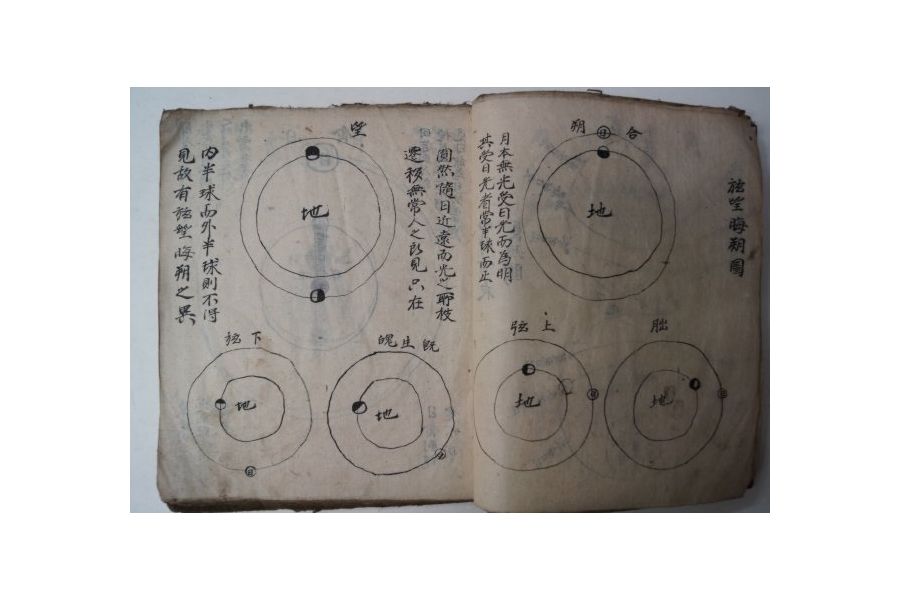 弦望晦朔圖
合朔
日
地
月本無光受日光而爲明
其受日光者常半球而正
朏
地
日
上弦
地
日
圓然隨日近遠而光之
遷移無常人之所見只在
望
地
内半球而外半球則不得
見故有弦望晦朔之異
既生魄
地
下弦
地
日